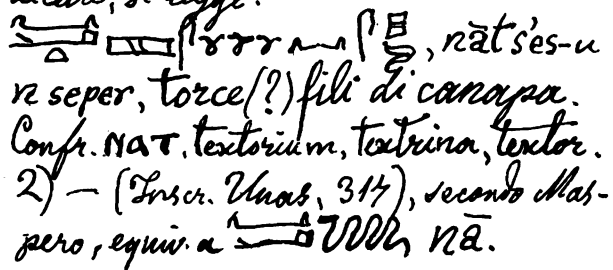 , si legge:
, nāt s'es-u
n seper, torce (?) fili di canapa.
Confr. ⲛⲁⲧ, textorium, textrina, textor.
2) — (Inscr. Unas, 314), secondo Mas-
pero, equiv. a nā.